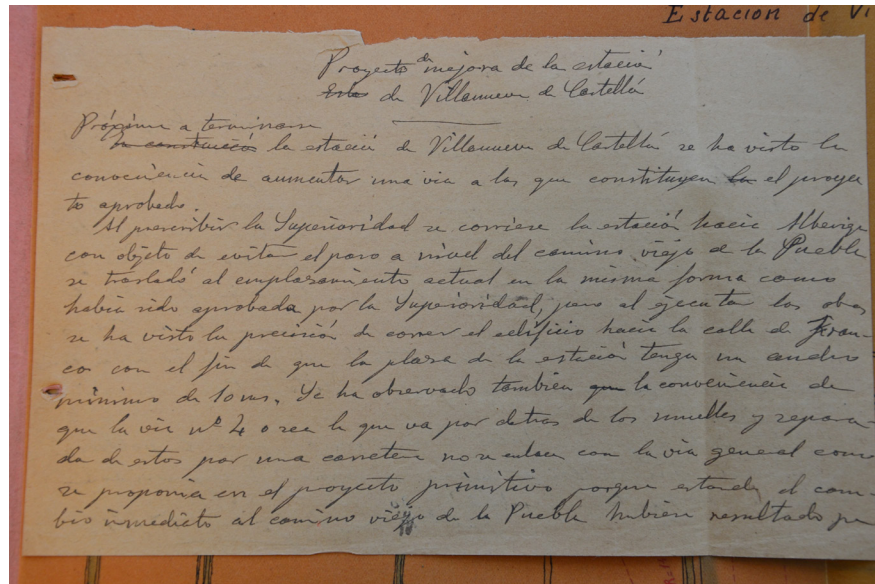 Estación de Vi
Proyecto de mejora de la estación
Esta de Villanueva de Castellón
Próxima a terminarse
la construcción la estación de Villanueva de Castellón se ha visto la
conveniencia de aumentar una via a las que constituyen la el proyec
to aprobado.
Al prescribir la Superioridad se corriese la estación hacia Alberique
con objeto de evitar el paso a nivel del camino viejo de la Puebla
se trasladó al emplazamiento actual en la misma forma como
habia sido aprobada por la Superioridad, pero al ejecutar las obras
se ha visto la precisión de correr el edificio hacia la calle de Fran-
cos con el fin de que la plaza de la estación tenga un ancho
minimo de 10 ms. Se ha observado tambien que la conveniencia de
que la via nº 4 o sea la que va por detras de los muelles y separa-
da de estos por una carretera no se enlace con la via general como
se proponia en el proyecto primitivo porque estando el cam-
bio inmediato al camino viejo de la Puebla hubiera resultado pe